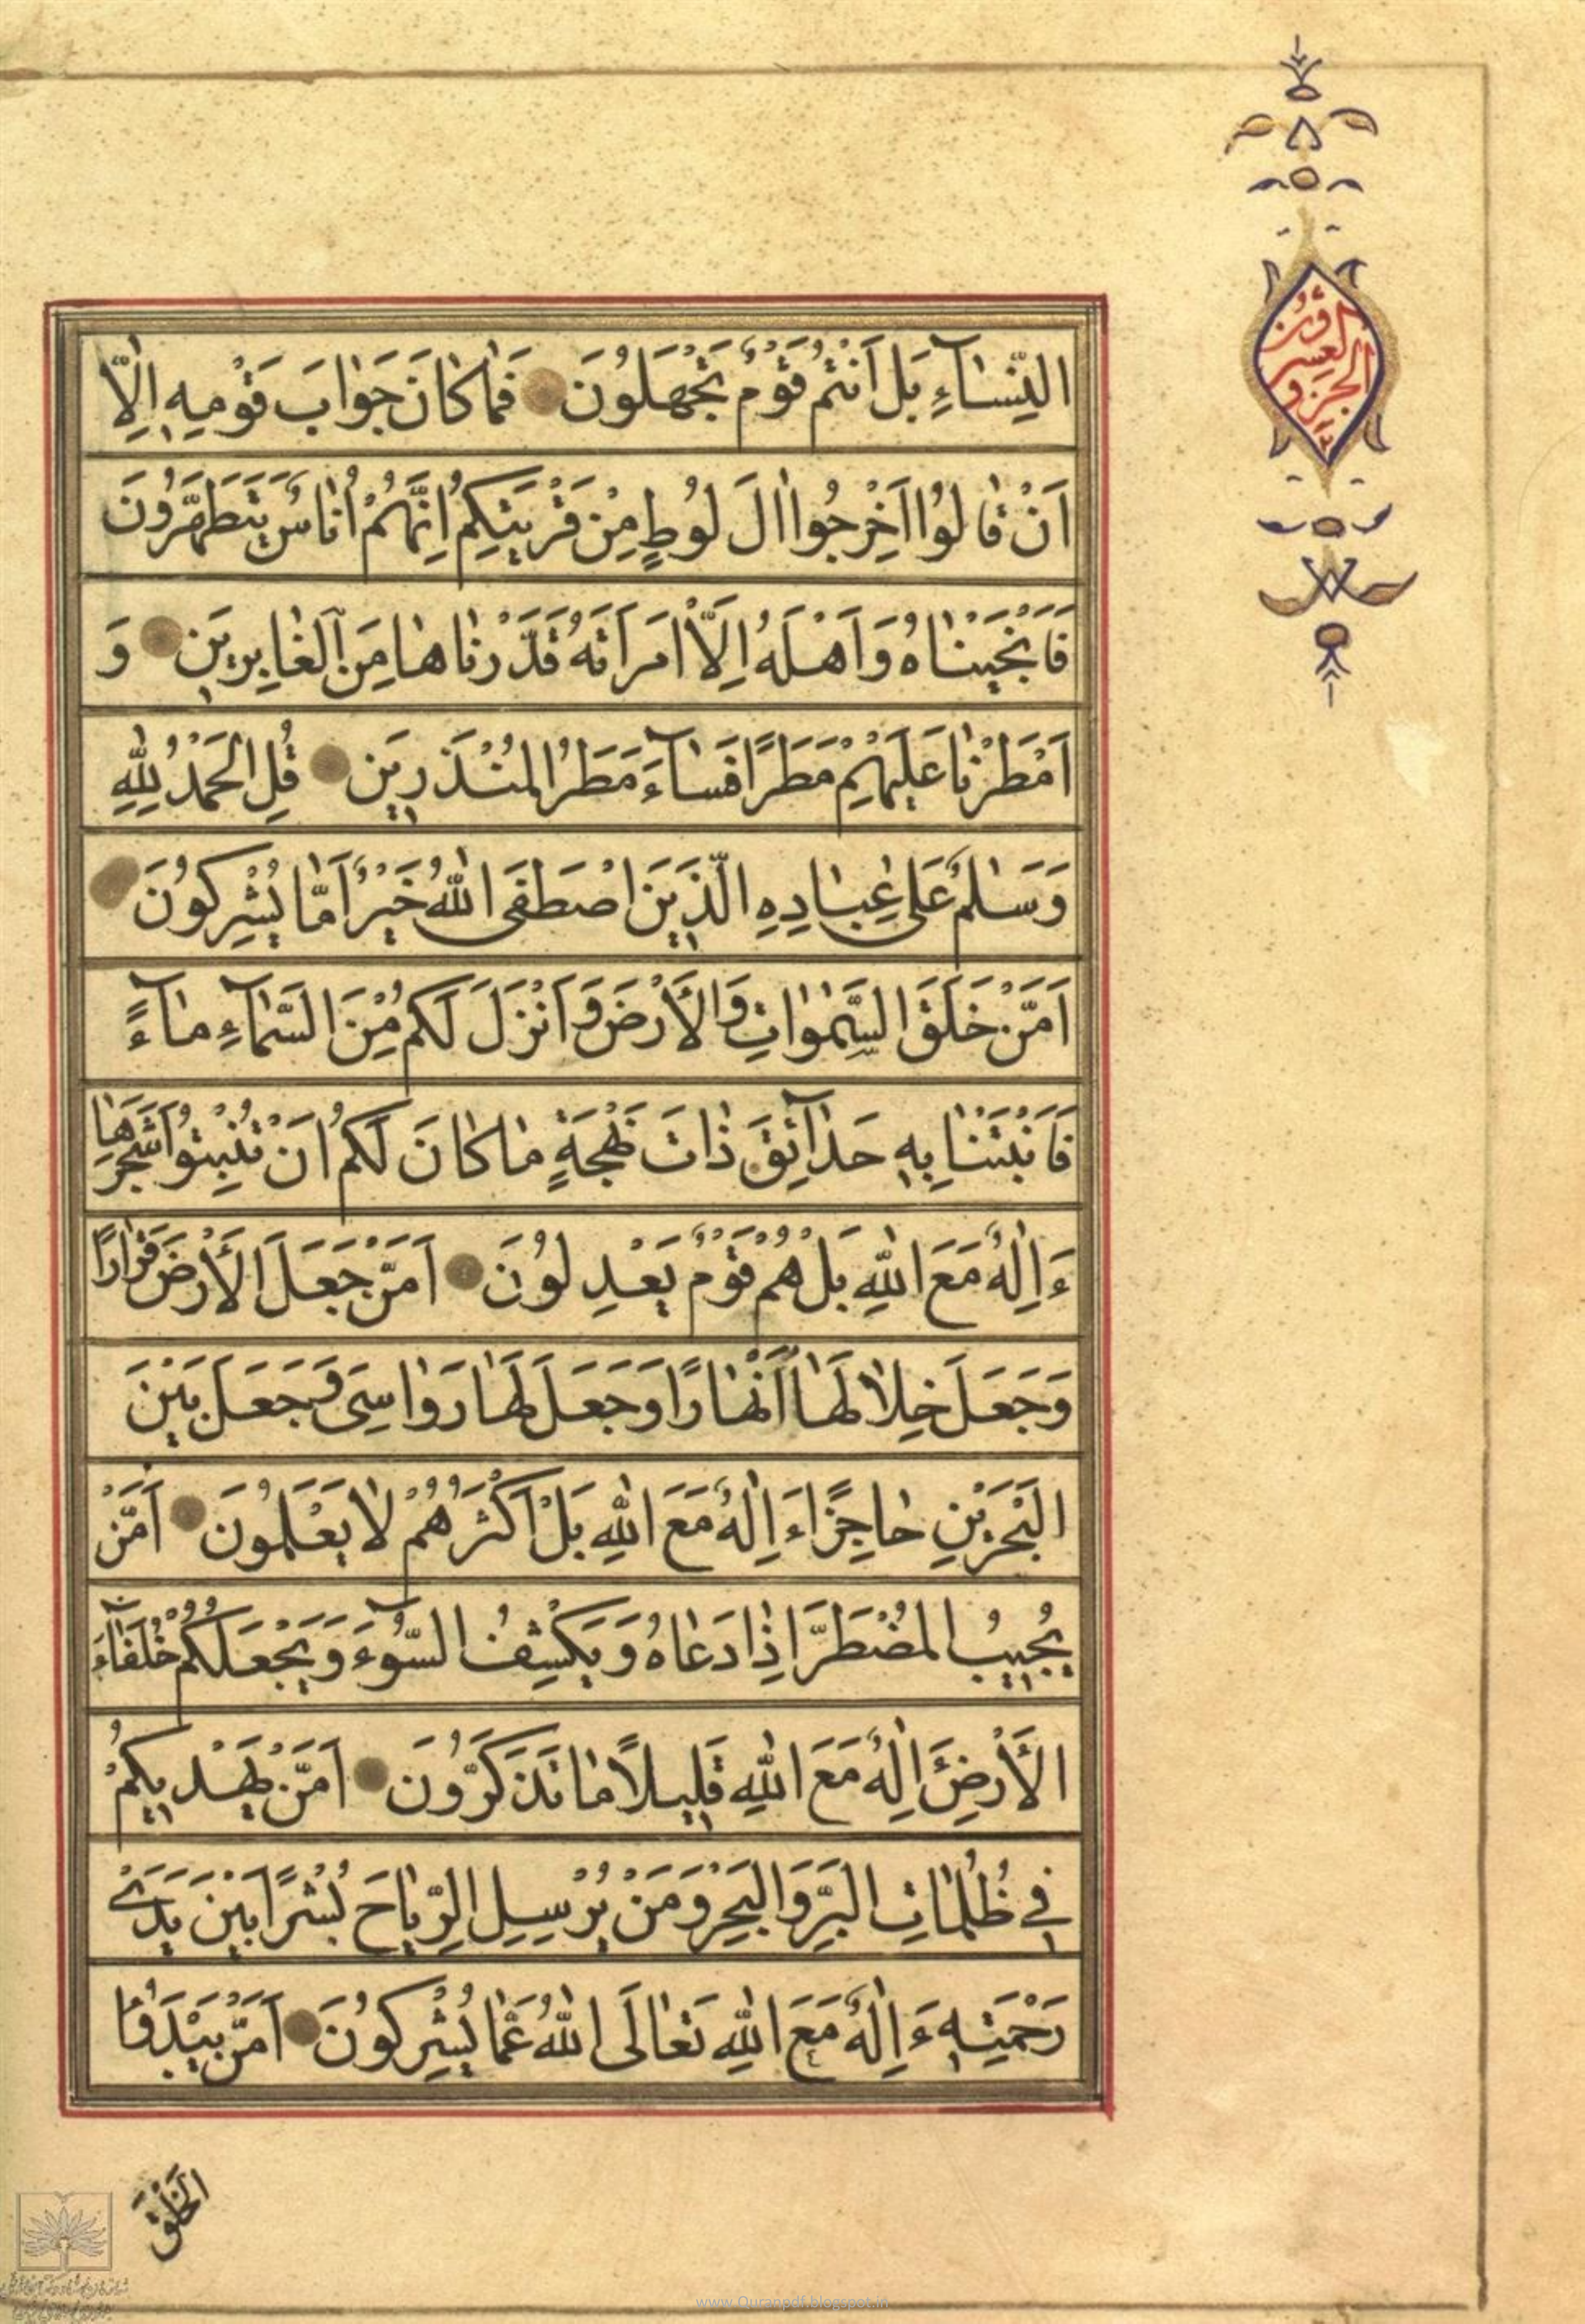 الجزو
العشرون
النِّسَآءِ بَلْ اَنْتُمْ قَوْمٌ تَجْهَلُونَ فَمٰا كٰانَ جَوٰابَ قَوْمِهٖ اِلّٰا
اَنْ قٰالُوا اَخْرِجُوا اٰلَ لُوطٍ مِنْ قَرْيَتِكُمْ اِنَّهُمْ اُنٰاسٌ يَتَطَهَّرُونَ
فَاَنْجَيْنٰاهُ وَاَهْلَهُ اِلَّا امْرَاَتَهُ قَدَّرْنٰاهٰا مِنَ الْغٰابِرِينَ وَ
اَمْطَرْنٰا عَلَيْهِمْ مَطَرًا فَسٰآءَ مَطَرُ الْمُنْذَرِينَ قُلِ الْحَمْدُ لِلّٰهِ
وَسَلٰمٌ عَلىٰ عِبٰادِهِ الَّذِينَ اصْطَفَى اللّٰهُ خَيْرٌ اَمّٰا يُشْرِكُونَ
اَمَّنْ خَلَقَ السَّمٰوٰاتِ وَالْاَرْضَ وَاَنْزَلَ لَكُمْ مِنَ السَّمٰآءِ مٰآءً
فَاَنْبَتْنٰا بِهٖ حَدٰآئِقَ ذٰاتَ بَهْجَةٍ مٰا كٰانَ لَكُمْ اَنْ تُنْبِتُوا شَجَرَهٰا
ءَاِلٰهٌ مَعَ اللّٰهِ بَلْ هُمْ قَوْمٌ يَعْدِلُونَ اَمَّنْ جَعَلَ الْاَرْضَ قَرٰارًا
وَجَعَلَ خِلٰالَهٰا اَنْهٰارًا وَجَعَلَ لَهٰا رَوٰاسِىَ وَجَعَلَ بَيْنَ
الْبَحْرَيْنِ حٰاجِزًا ءَاِلٰهٌ مَعَ اللّٰهِ بَلْ اَكْثَرُهُمْ لٰا يَعْلَمُونَ اَمَّنْ
يُجِيبُ الْمُضْطَرَّ اِذٰا دَعٰاهُ وَيَكْشِفُ السُّوٓءَ وَيَجْعَلُكُمْ خُلَفٰآءَ
الْاَرْضِ ءَاِلٰهٌ مَعَ اللّٰهِ قَلِيلًا مٰا تَذَكَّرُونَ اَمَّنْ يَهْدِيكُمْ
فِي ظُلُمٰاتِ الْبَرِّ وَالْبَحْرِ وَمَنْ يُرْسِلِ الرِّيٰاحَ بُشْرًا بَيْنَ يَدَىْ
رَحْمَتِهٖ ءَاِلٰهٌ مَعَ اللّٰهِ تَعٰالَى اللّٰهُ عَمّٰا يُشْرِكُونَ اَمَّنْ يَبْدَؤُا
الْخَلْقَ
www.Quranpdf.blogspot.in